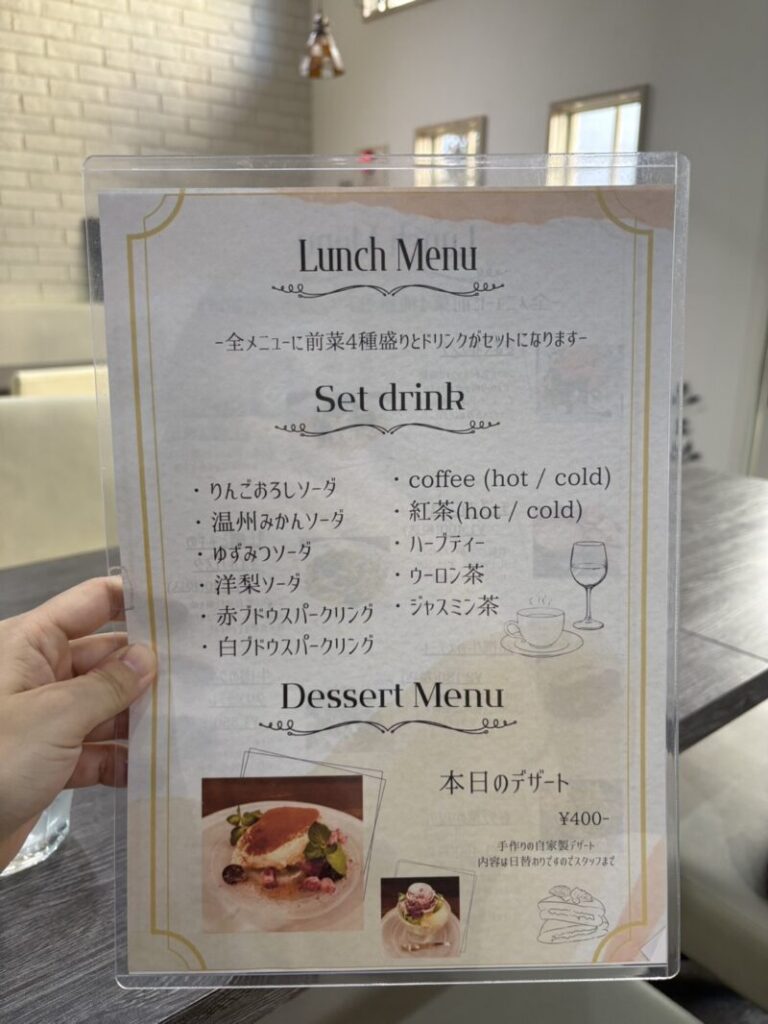 Lunch Menu
-全メニューに前菜4種盛りとドリンクがセットになります-
Set drink
・りんごおろしソーダ
・温州みかんソーダ
・ゆずみつソーダ
・洋梨ソーダ
・赤ブドウスパークリング
・白ブドウスパークリング
・coffee (hot / cold)
・紅茶(hot / cold)
・ハーブティー
・ウーロン茶
・ジャスミン茶
Dessert Menu
本日のデザート
¥400-
手作りの自家製デザート
内容は日替わりですのでスタッフまで